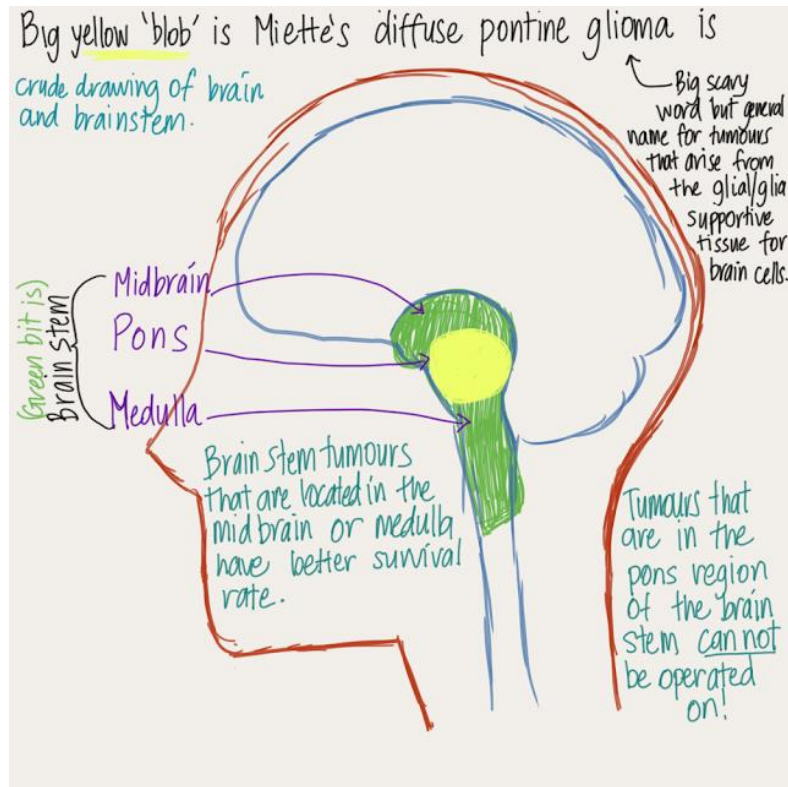 Big yellow 'blob' is Miette's diffuse pontine glioma is
crude drawing of brain
and brainstem.
Big scary
word but general
name for tumours
that arise from
the glial/glia
supportive
tissue for
brain cells.
(Green bit is)
Brain stem
Midbrain
Pons
Medulla
Brain stem tumours
that are located in the
midbrain or medulla
have better survival
rate.
Tumours that
are in the
pons region
of the brain
stem cannot
be operated
on!